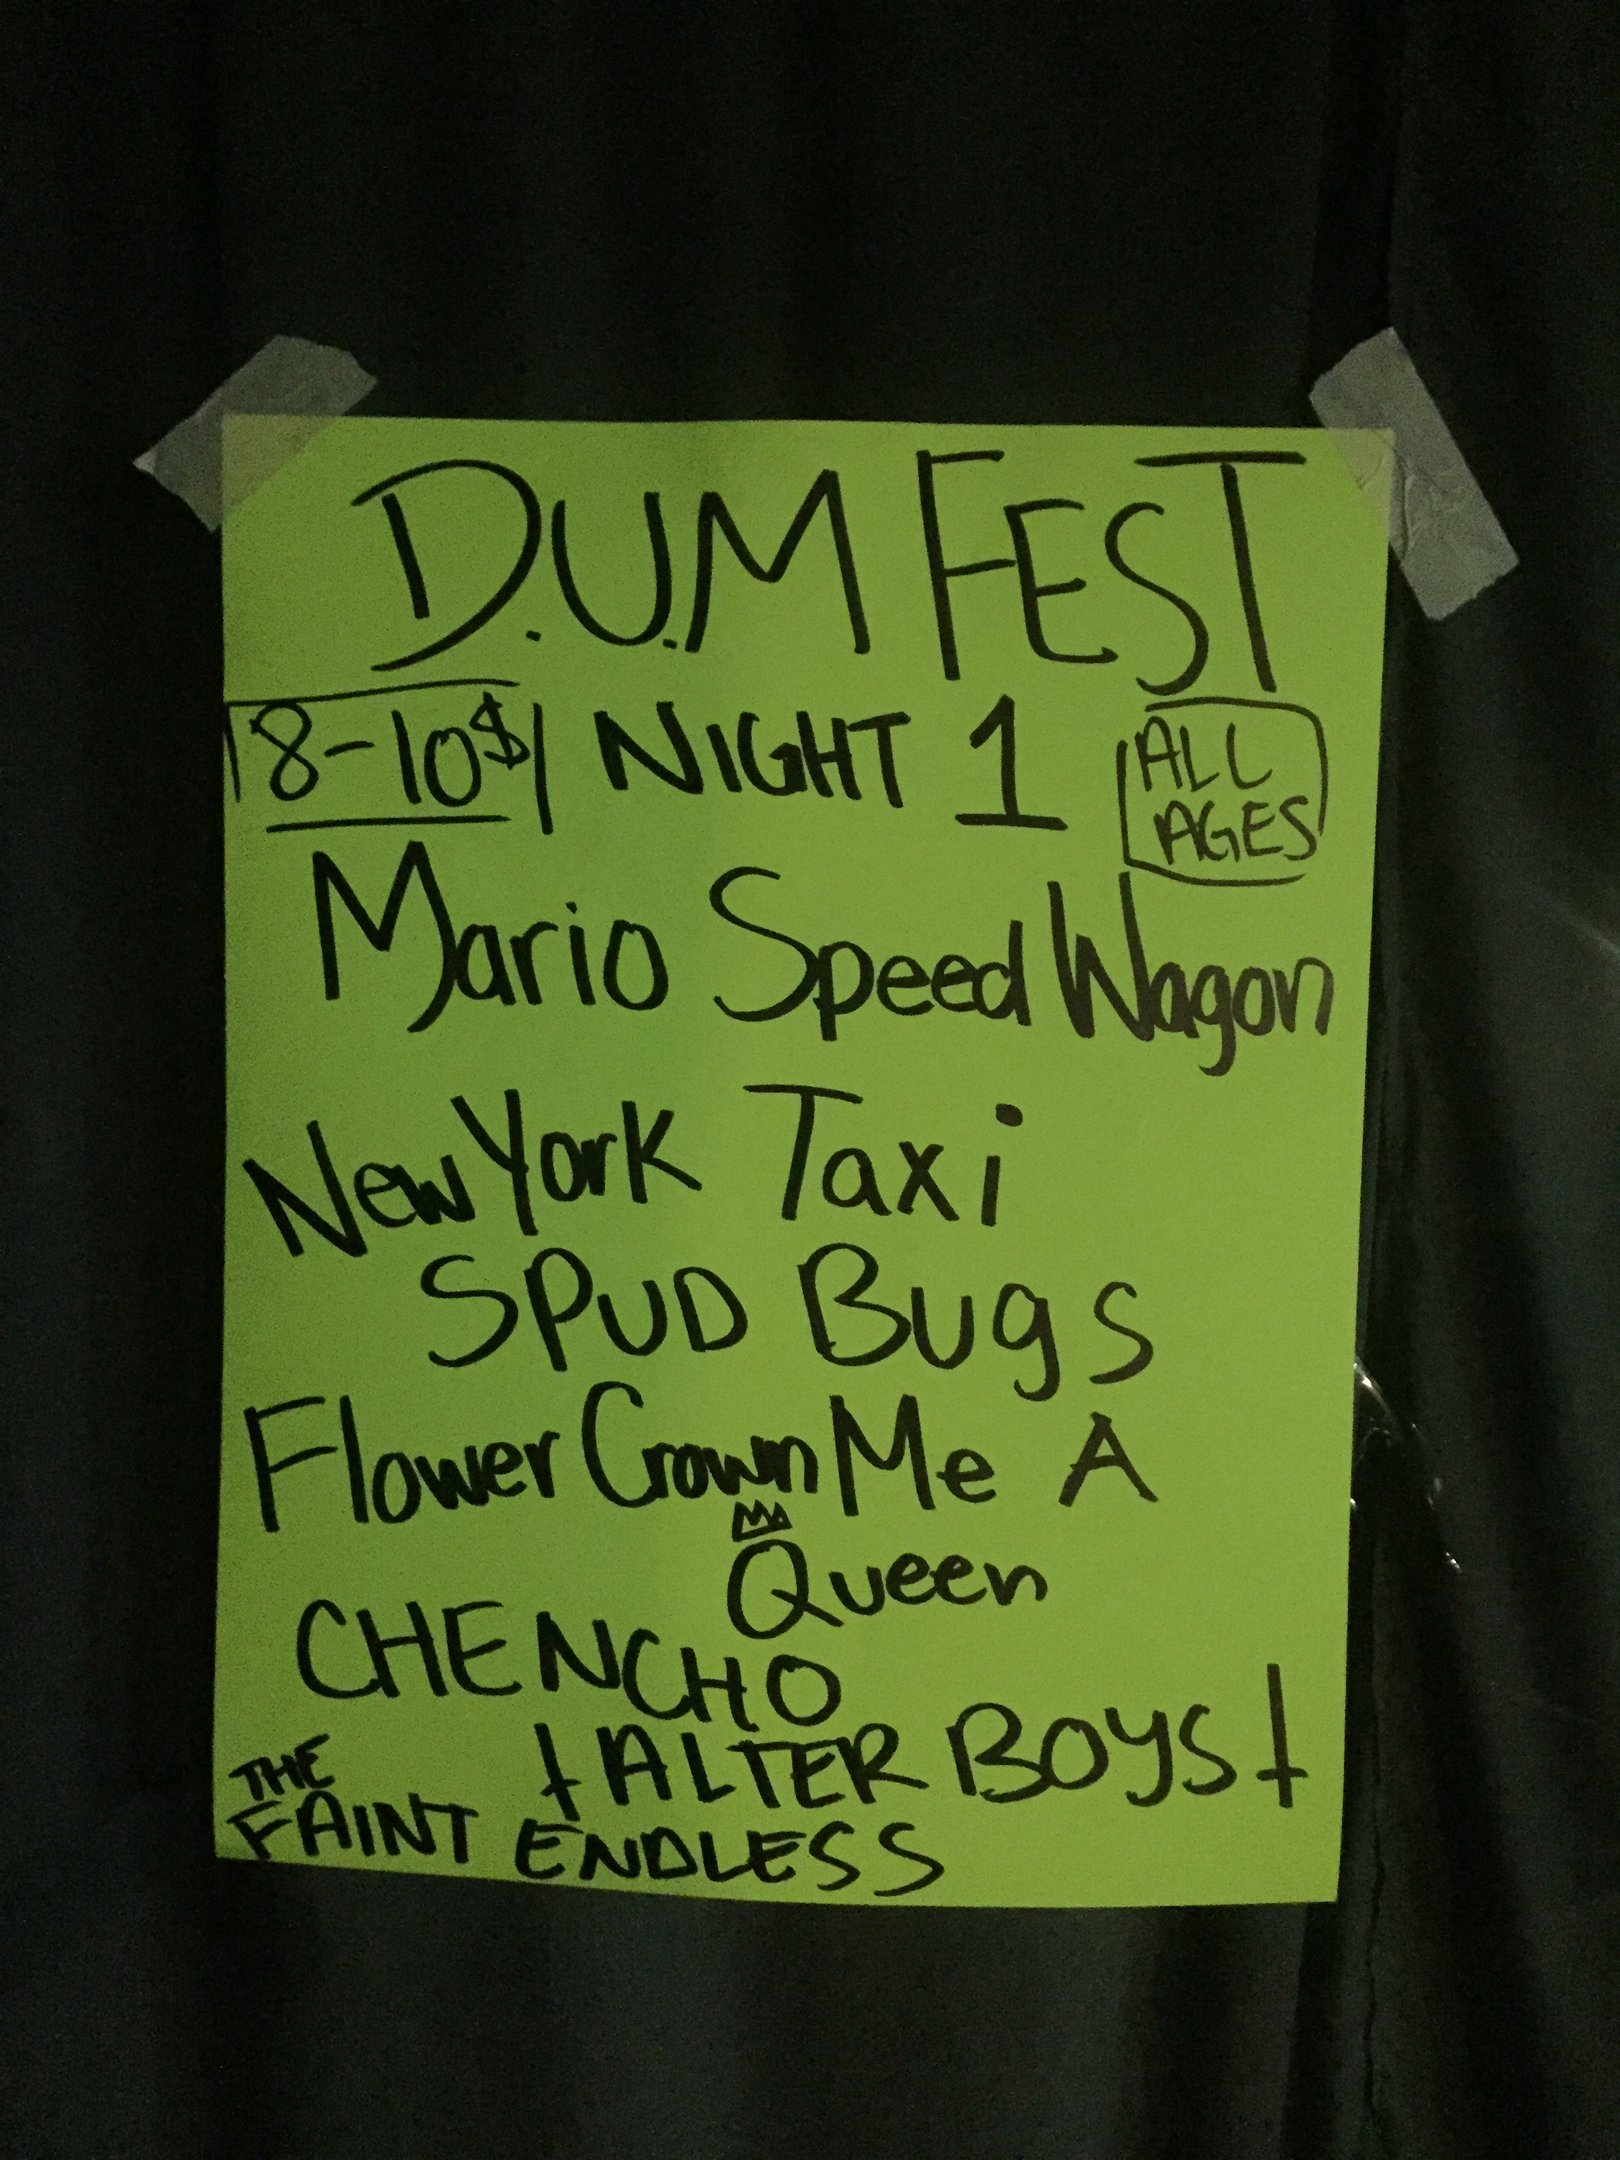 D.U.M FEST
8-10$ NIGHT 1 ALL AGES
Mario Speed Wagon
New York Taxi
SPUD Bugs
Flower Crown Me A
Queen
CHENCHO
†ALTER BOYS†
THE FAINT ENDLESS